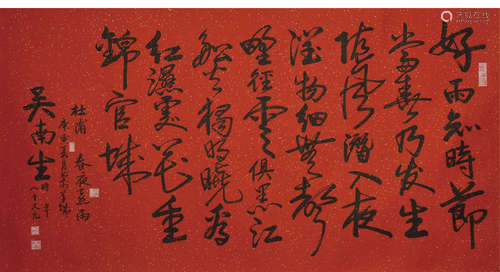 好雨知時節
當春乃發生
隨風潛入夜
潤物細無聲
野徑雲俱黑江
船火獨明曉看
紅濕處花重
錦官城
杜甫 春夜喜雨
庚寅夏月於羊城
吳南生時年
八十又九